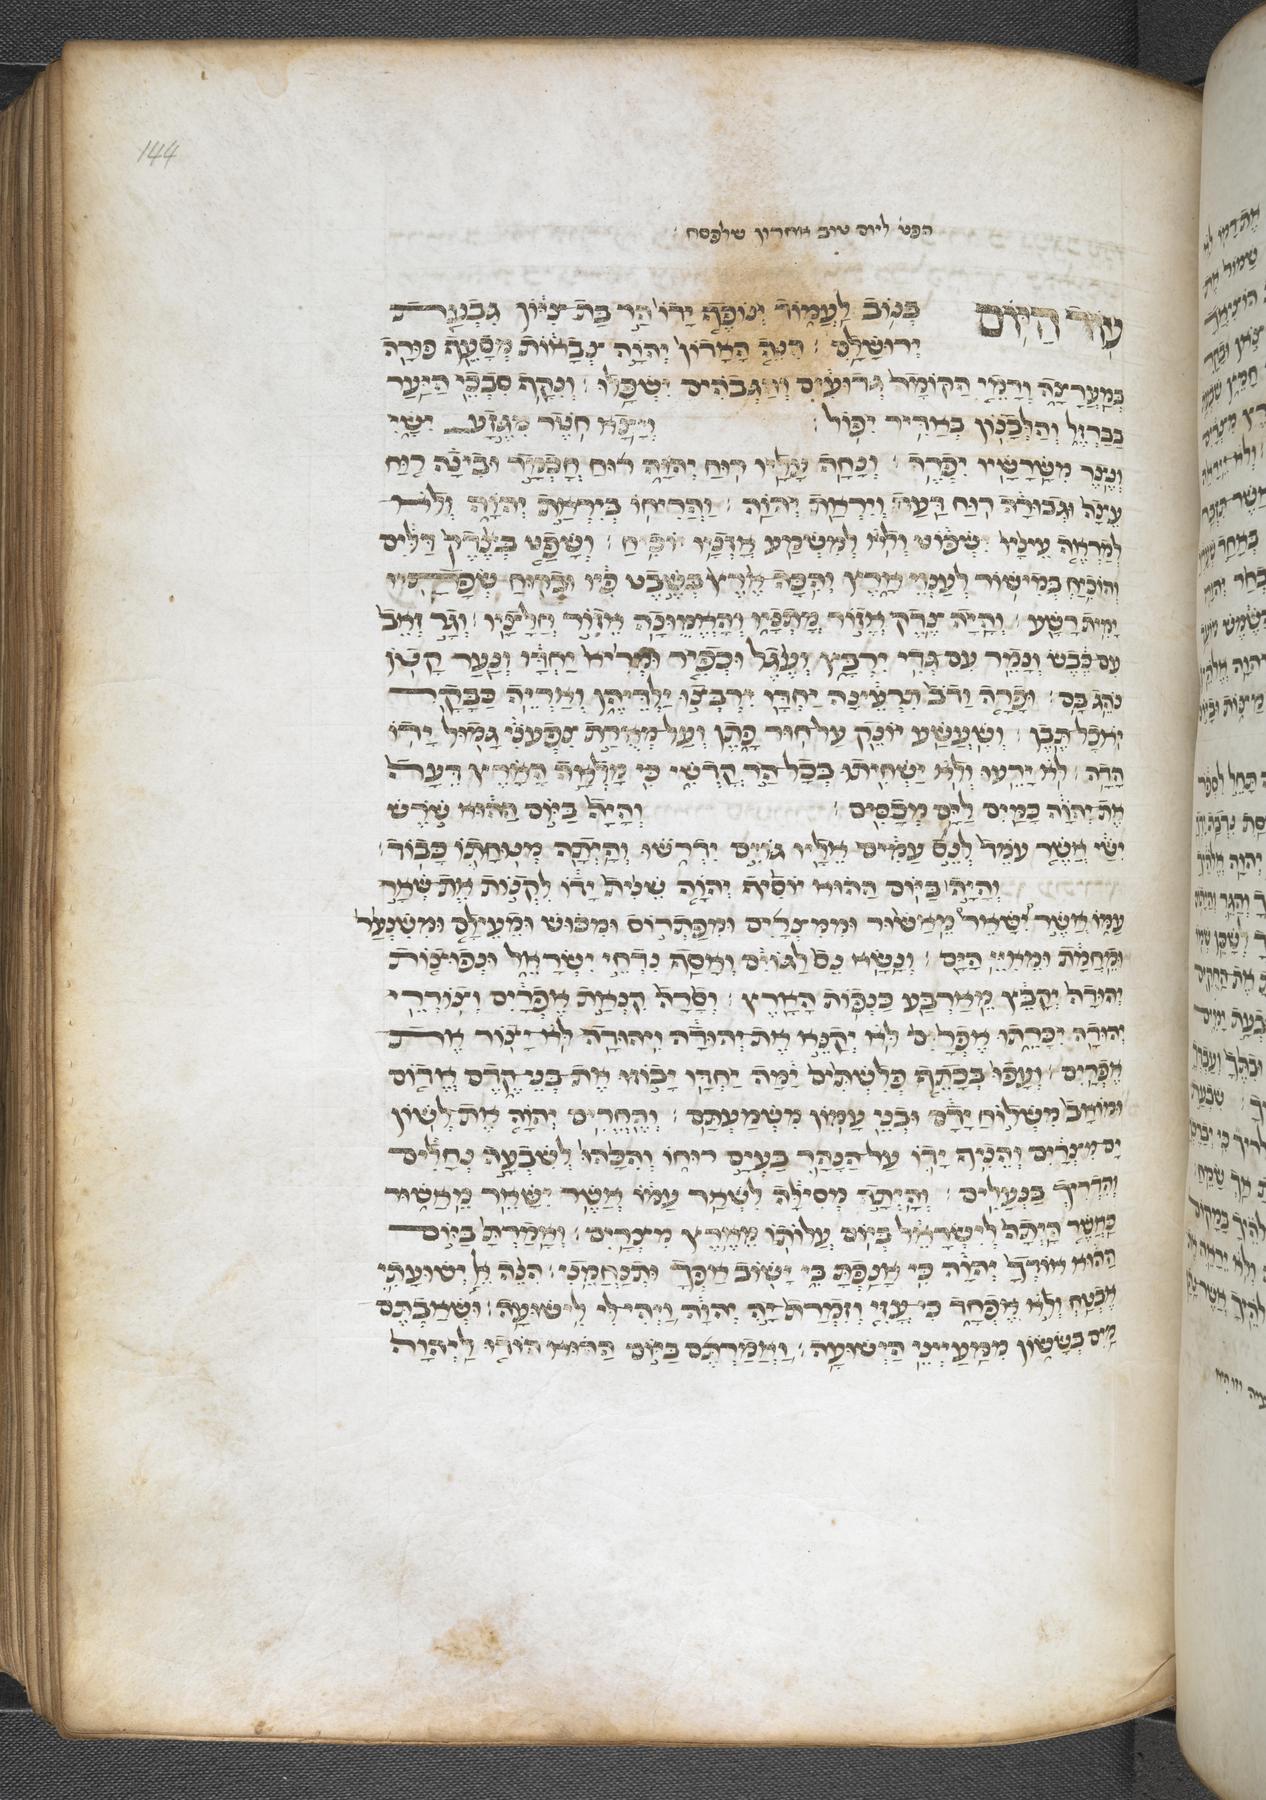 144
הפט׳ ליום טוב אחרון שלפסח
עוד היום בנוב לעמוד ינופף ידו הר בת ציון גבעת
ירושלם׃ הנה האדון יהוה צבאות מסעף פורה
במערצה ורמי הקומה גדועים והגבהים ישפלו׃ ונקף סבכי היער
בברזל והלבנון באדיר יפול׃ ויצא חטר מגזע ישי
ונצר משרשיו יפרה׃ ונחה עליו רוח יהוה רוח חכמה ובינה רוח
עצה וגבורה רוח דעת ויראת יהוה׃ והריחו ביראת יהוה ולא
למראה עיניו ישפוט ולא למשמע אזניו יוכיח׃ ושפט בצדק דלים
והוכיח במישור לענוי ארץ והכה ארץ בשבט פיו וברוח שפתיו
ימית רשע׃ והיה צדק אזור מתניו והאמונה אזור חלציו׃ וגר זאב
עם כבש ונמר עם גדי ירבץ ועגל וכפיר ומריא יחדו ונער קטון
נהג בם׃ ופרה ודב תרעינה יחדו ירבצו ילדיהן ואריה כבקר
יאכל תבן׃ ושעשע יונק על חור פתן ועל מאורת צפעני גמול ידו
הדה׃ לא ירעו ולא ישחיתו בכל הר קדשי כי מלאה הארץ דעה
את יהוה כמים לים מכסים׃ והיה ביום ההוא שרש
ישי אשר עמד לנס עמים אליו גוים ידרשו והיתה מנוחתו כבוד׃
והיה ביום ההוא יוסיף יהוה שנית ידו לקנות את שאר
עמו אשר ישאר מאשור וממצרים ומפתרוס ומכוש ומעילם ומשנער
ומחמת ומאיי הים׃ ונשא נס לגוים ואסף נדחי ישראל ונפוצות
יהודה יקבץ מארבע כנפות הארץ׃ וסרה קנאת אפרים וצוררי
יהודה יכרתו אפרים לא יקנא את יהודה ויהודה לא יצור את
אפרים׃ ועפו בכתף פלשתים ימה יחדו יבוזו את בני קדם אדום
ומואב משלוח ידם ובני עמון משמעתם׃ והחרים יהוה את לשון
ים מצרים והניף ידו על הנהר בעים רוחו והכהו לשבעה נחלים
והדריך בנעלים׃ והיתה מסילה לשאר עמו אשר ישאר מאשור
כאשר היתה לישראל ביום עלותו מארץ מצרים׃ ואמרת ביום
ההוא אודך יהוה כי אנפת בי ישוב אפך ותנחמני׃ הנה אל ישועתי
אבטח ולא אפחד כי עזי וזמרת יה יהוה ויהי לי לישועה׃ ושאבתם
מים בששון ממעייני הישועה׃ ואמרתם ביום ההוא הודו ליהוה